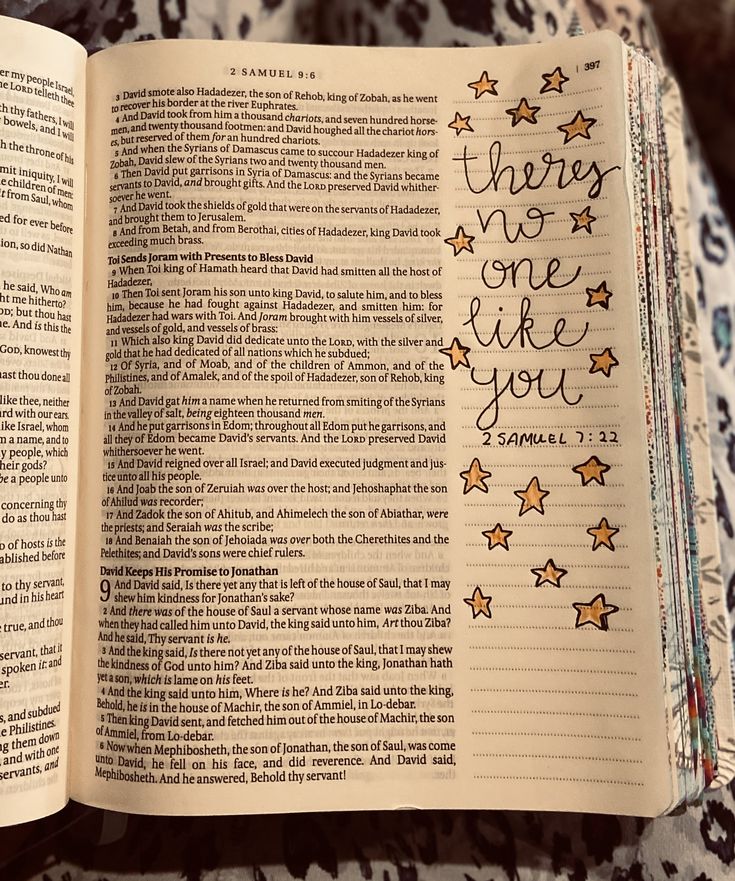 er my people Israel,
he LORD telleth thee
h thy fathers, I will
bowels, and I will
h the throne of his
mit iniquity, I will
e children of men:
t from Saul, whom
ed for ever before
ion, so did Nathan
he said, Who am
ht me hitherto?
OD; but thou hast
e. And is this the
GOD, knowest thy
hast thou done all
like thee, neither
rd with our ears.
ike Israel, whom
m a name, and to
y people, which
heir gods?
be a people unto
concerning thy
do as thou hast
D of hosts is the
ablished before
to thy servant,
und in his heart
e true, and thou
servant, that it
spoken it: and
er.
s, and subdued
e Philistines.
ng them down
and with one
servants, and
2 SAMUEL 9:6
3 David smote also Hadadezer, the son of Rehob, king of Zobah, as he went
to recover his border at the river Euphrates.
4 And David took from him a thousand chariots, and seven hundred horse-
men, and twenty thousand footmen: and David houghed all the chariot hors-
es, but reserved of them for an hundred chariots.
5 And when the Syrians of Damascus came to succour Hadadezer king of
Zobah, David slew of the Syrians two and twenty thousand men.
6 Then David put garrisons in Syria of Damascus: and the Syrians became
servants to David, and brought gifts. And the LORD preserved David whither-
soever he went.
7 And David took the shields of gold that were on the servants of Hadadezer,
and brought them to Jerusalem.
8 And from Betah, and from Berothai, cities of Hadadezer, king David took
exceeding much brass.
Toi Sends Joram with Presents to Bless David
9 When Toi king of Hamath heard that David had smitten all the host of
Hadadezer,
10 Then Toi sent Joram his son unto king David, to salute him, and to bless
him, because he had fought against Hadadezer, and smitten him: for
Hadadezer had wars with Toi. And Joram brought with him vessels of silver,
and vessels of gold, and vessels of brass:
11 Which also king David did dedicate unto the LORD, with the silver and
gold that he had dedicated of all nations which he subdued;
12 Of Syria, and of Moab, and of the children of Ammon, and of the
Philistines, and of Amalek, and of the spoil of Hadadezer, son of Rehob, king
of Zobah.
13 And David gat him a name when he returned from smiting of the Syrians
in the valley of salt, being eighteen thousand men.
14 And he put garrisons in Edom; throughout all Edom put he garrisons, and
all they of Edom became David's servants. And the LORD preserved David
whithersoever he went.
15 And David reigned over all Israel; and David executed judgment and jus-
tice unto all his people.
16 And Joab the son of Zeruiah was over the host; and Jehoshaphat the son
of Ahilud was recorder;
17 And Zadok the son of Ahitub, and Ahimelech the son of Abiathar, were
the priests; and Seraiah was the scribe;
18 And Benaiah the son of Jehoiada was over both the Cherethites and the
Pelethites; and David's sons were chief rulers.
David Keeps His Promise to Jonathan
9 And David said, Is there yet any that is left of the house of Saul, that I may
shew him kindness for Jonathan's sake?
2 And there was of the house of Saul a servant whose name was Ziba. And
when they had called him unto David, the king said unto him, Art thou Ziba?
And he said, Thy servant is he.
3 And the king said, Is there not yet any of the house of Saul, that I may shew
the kindness of God unto him? And Ziba said unto the king, Jonathan hath
yet a son, which is lame on his feet.
4 And the king said unto him, Where is he? And Ziba said unto the king,
Behold, he is in the house of Machir, the son of Ammiel, in Lo-debar.
5 Then king David sent, and fetched him out of the house of Machir, the son
of Ammiel, from Lo-debar.
6 Now when Mephibosheth, the son of Jonathan, the son of Saul, was come
unto David, he fell on his face, and did reverence. And David said,
Mephibosheth. And he answered, Behold thy servant!
| 397
theres
no
one
like
you
2 SAMUEL 7:22